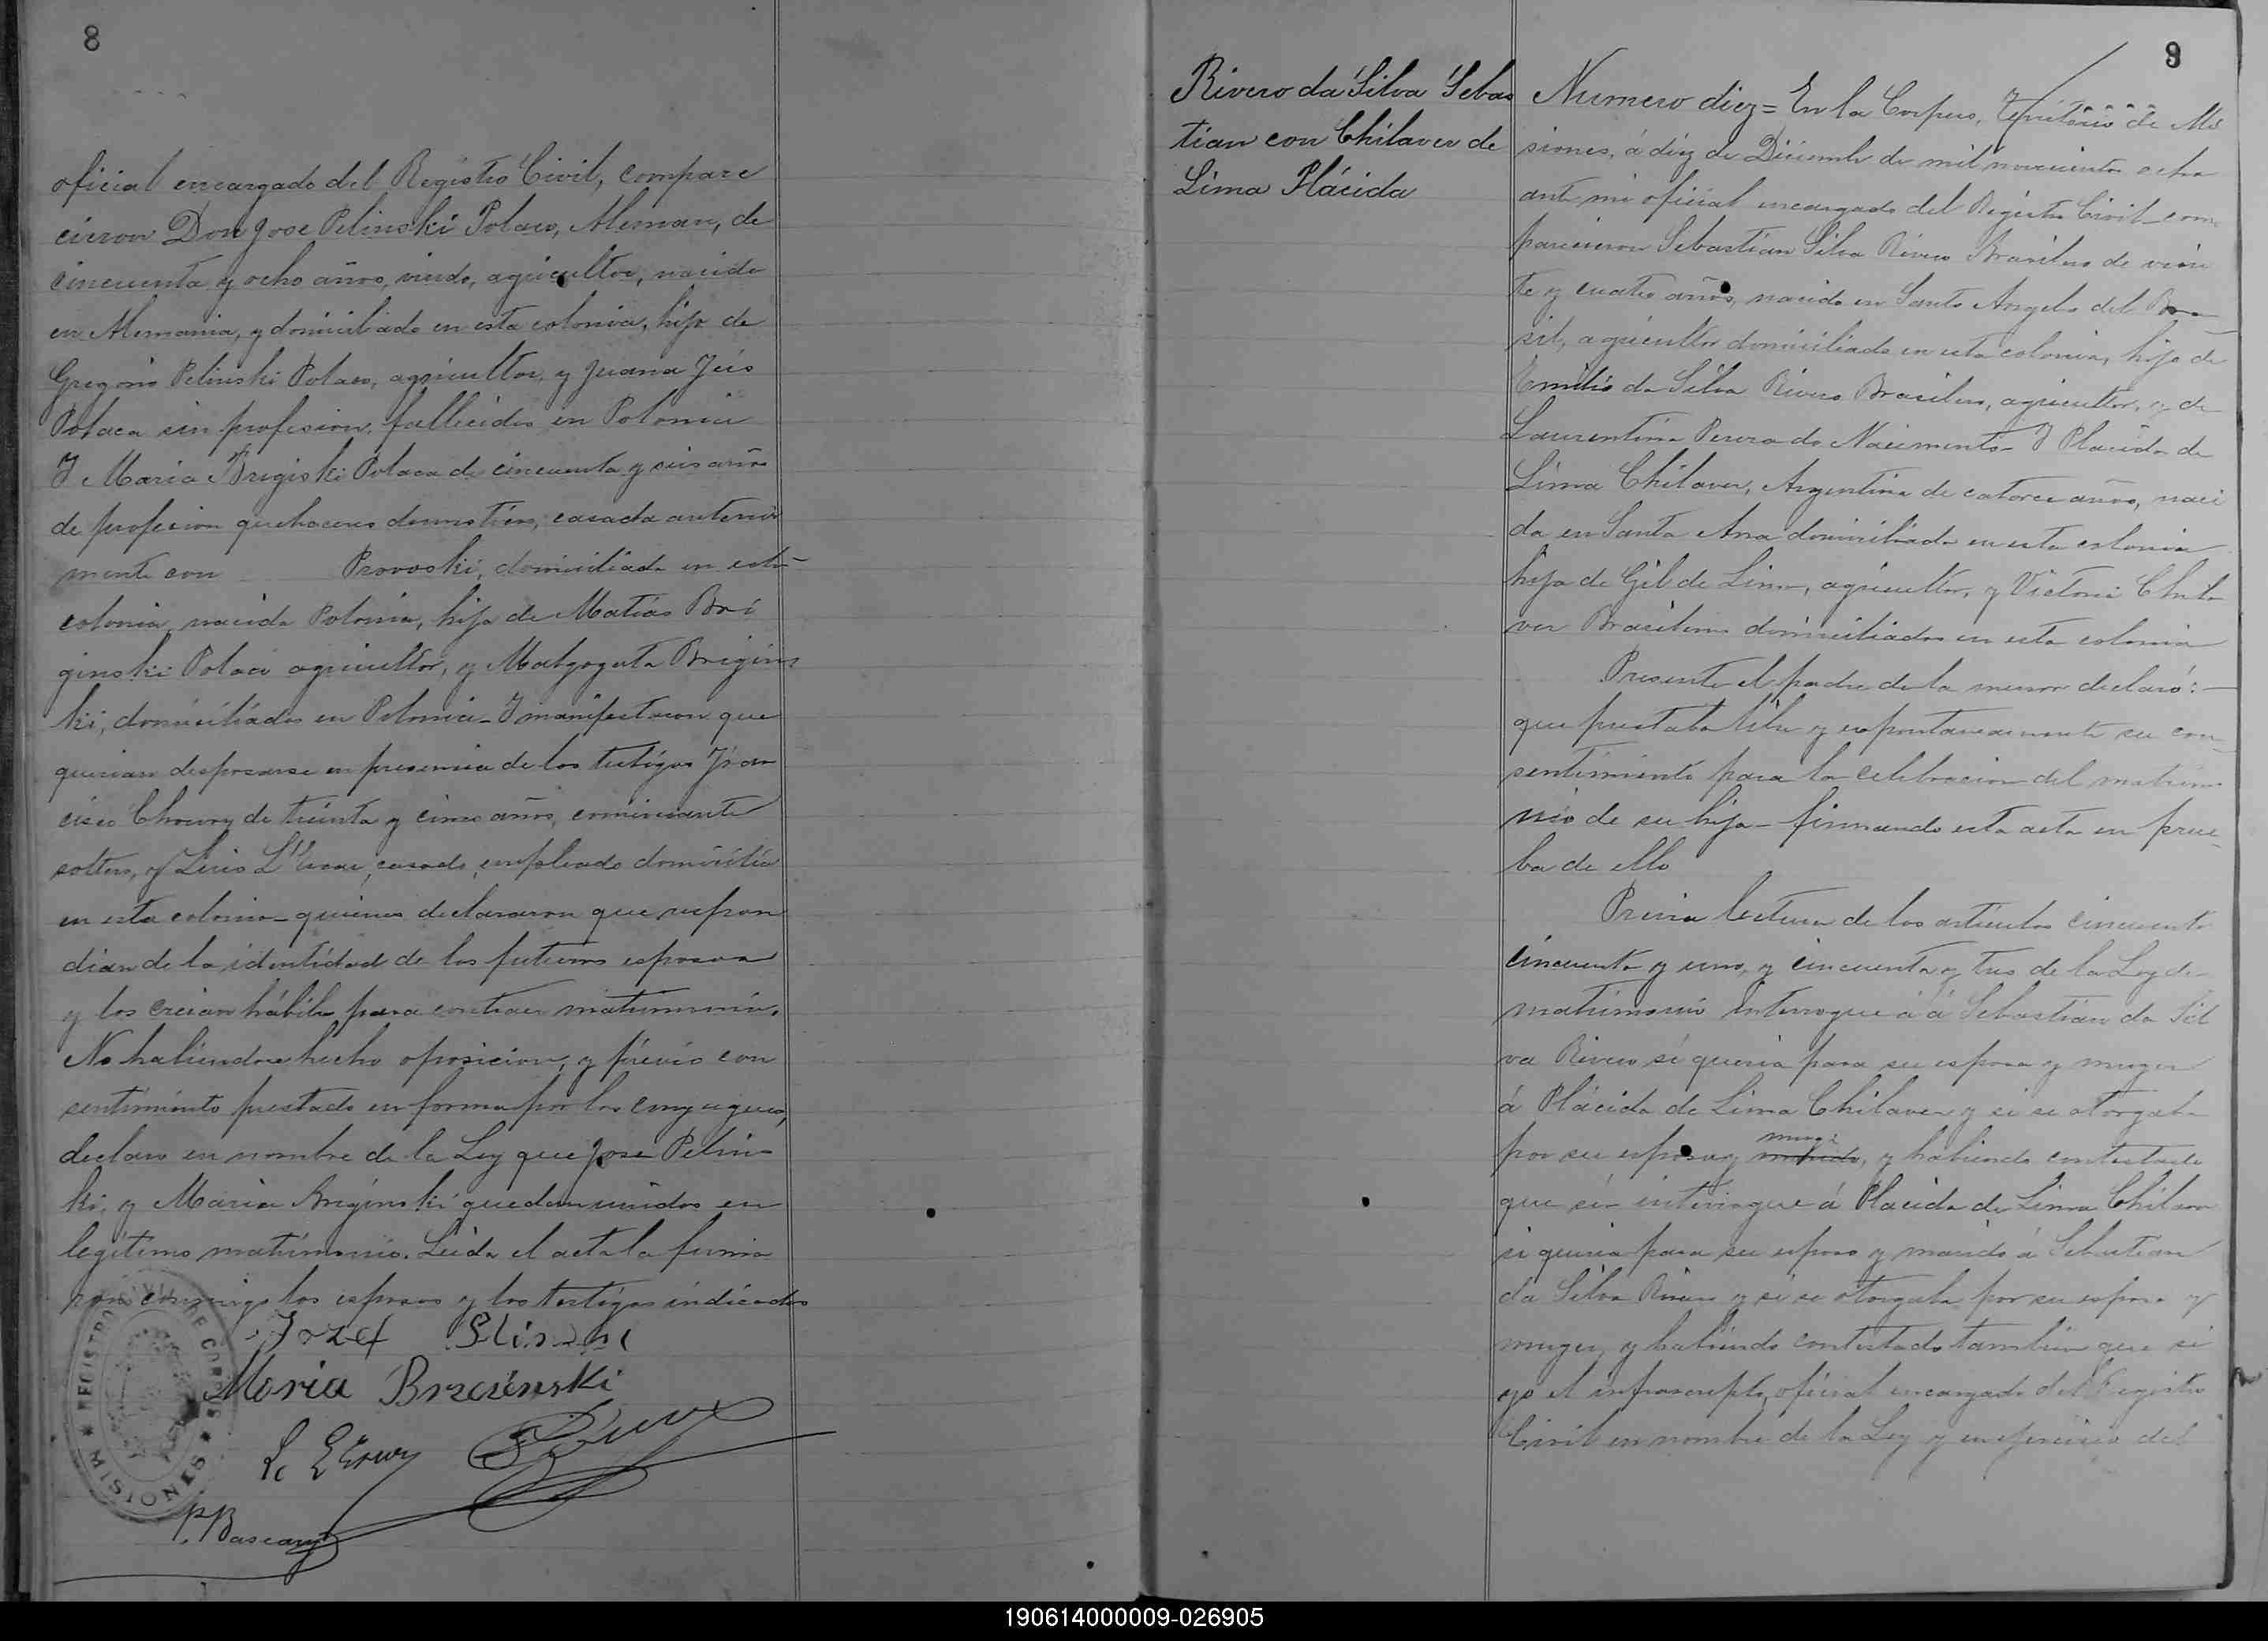 8
oficial encargado del Registro Civil, compare
cieron Don Jose Pelinski Polaco, Aleman, de
cincuenta y ocho años, viudo, agricultor, nacido
en Alemania, y domiciliado en esta colonia, hijo de
Gregorio Pelinski Polaco, agricultor, y Juana
Polaca sin profesion, fallecidos en Polonia
Y Maria Brigiski Polaca de cincuenta y seis años
de profesion quehaceres domesticos, casada anterior
mente con Provoski, domiciliada en esta
colonia nacida Polonia, hija de Matias Bri
ginski Polaco agricultor, y Malgogata Brigins
ki, domiciliados en Polonia_ Y manifestaron que
querian desposarse en presencia de los testigos Fran
cisco de treinta y cinco años, comerciante
soltero, y Luis casado, empleado domicilia
en esta colonia_ quienes declararon que respon
dian de la identidad de los futuros esposos
y los creian hábiles para contraer matrimonio.
No habiendose hecho oposicion, y prévio con
sentimiento prestado en forma por los conyugues,
declaro en nombre de la Ley que Jose Pelins
ki, y Maria Briginski quedan unidos en
legitimo matrimonio. Leida el acta la firma
ron conmigo los esposos y los testigos indicados
Jozef
Maria Brzezinski
P. Bascary
REGISTRO CIVIL DE CORPUS
MISIONES
9
Rivero da Silva Sebas
tian con Chilaver de
Lima Plácida
Numero diez = En la Corpus, Territorio de Mi
siones, á diez de Diciembre de mil novecientos ocho
ante mi oficial encargado del Registro Civil com
parecieron Sebastian Silva Rivero Brasilero de vein
te y cuatro años, nacido en Santo Angelo del Bra
sil, agricultor domiciliado en esta colonia, hijo de
Emilio da Silva Rivero Brasilero, agricultor, y de
Laurentina Perera do Nacimento_ Y Placida de
Lima Chilaver, Argentina de catorce años, naci
da en Santa Ana domiciliada en esta colonia
hija de Gil de Lima, agricultor, y Victoria Chila
ver Brasileros domiciliados en esta colonia
Presente el padre de la menor declaró:
que prestaba libre y espontaneamente su con
sentimiento para la celebracion del matrimo
nio de su hija_ firmando esta acta en prue
ba de ello
Previa lectura de los articulos cincuenta
cincuenta y uno, y cincuenta y tres de la Ley de
matrimonio interrogue á á Sebastian da Sil
va Rivero si queria para su esposa y muger
á Plácida de Lima Chilaver y si se otorgaba
por su esposa y marido, y habiendo contestado
que si_ interrogue á Placida de Lima Chilaver
si queria para su esposo y marido á Sebastian
da Silva Rivero y si se otorgaba por su esposa y
muger, y habiendo contestado tambien que si
yo el infrascripto, oficial encargado del Registro
Civil en nombre de la Ley y en ejercicio del
190614000009-026905